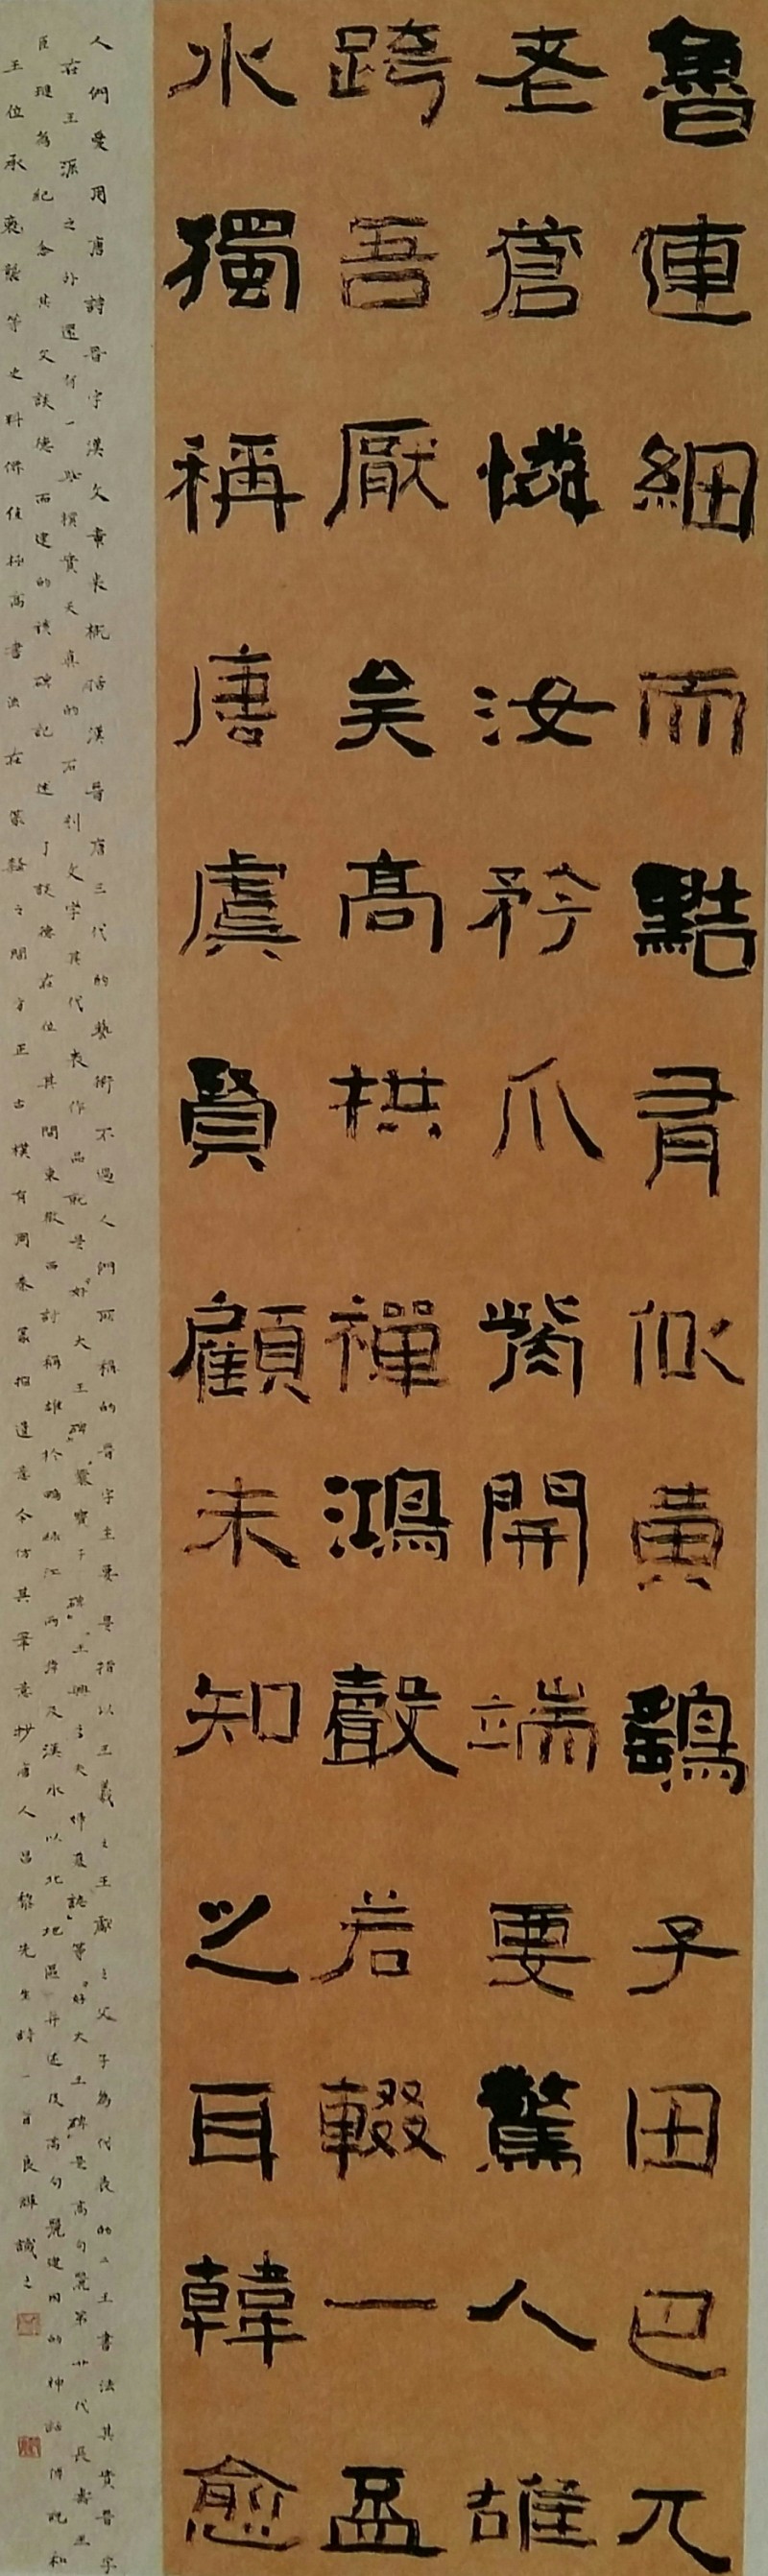 魯連細而黠有似黃鷂子田巴兀
老蒼憐汝矜爪觜開端要驚人雄
跨吾厭矣高拱禪鴻聲若輟一盃
水獨稱唐虞賢顧未知之耳韓愈
人們愛用唐詩晉字漢文章來概括漢晉唐三代的藝術不過人們所稱的晉字主要是指以王羲之王獻之父子為代表的二王書法其實晉字
在王派之外還有一路樸實天真的石刻文字其代表作品就是“好大王碑”“爨寶子碑”“王興之夫婦墓誌”等“好大王碑”是高句麗第廿代長壽王
巨璉為紀念其父談德而建的該碑記述了談德在位其間東西討稱雄於鴨綠江兩岸及漢水以北地區并述及高句麗建國的神話傳說和
王位承襲等史料價值極高書法在篆隸之間方正古樸有周秦篆籀遺意今仿其筆意抄唐人昌黎先生詩一首良雄識之